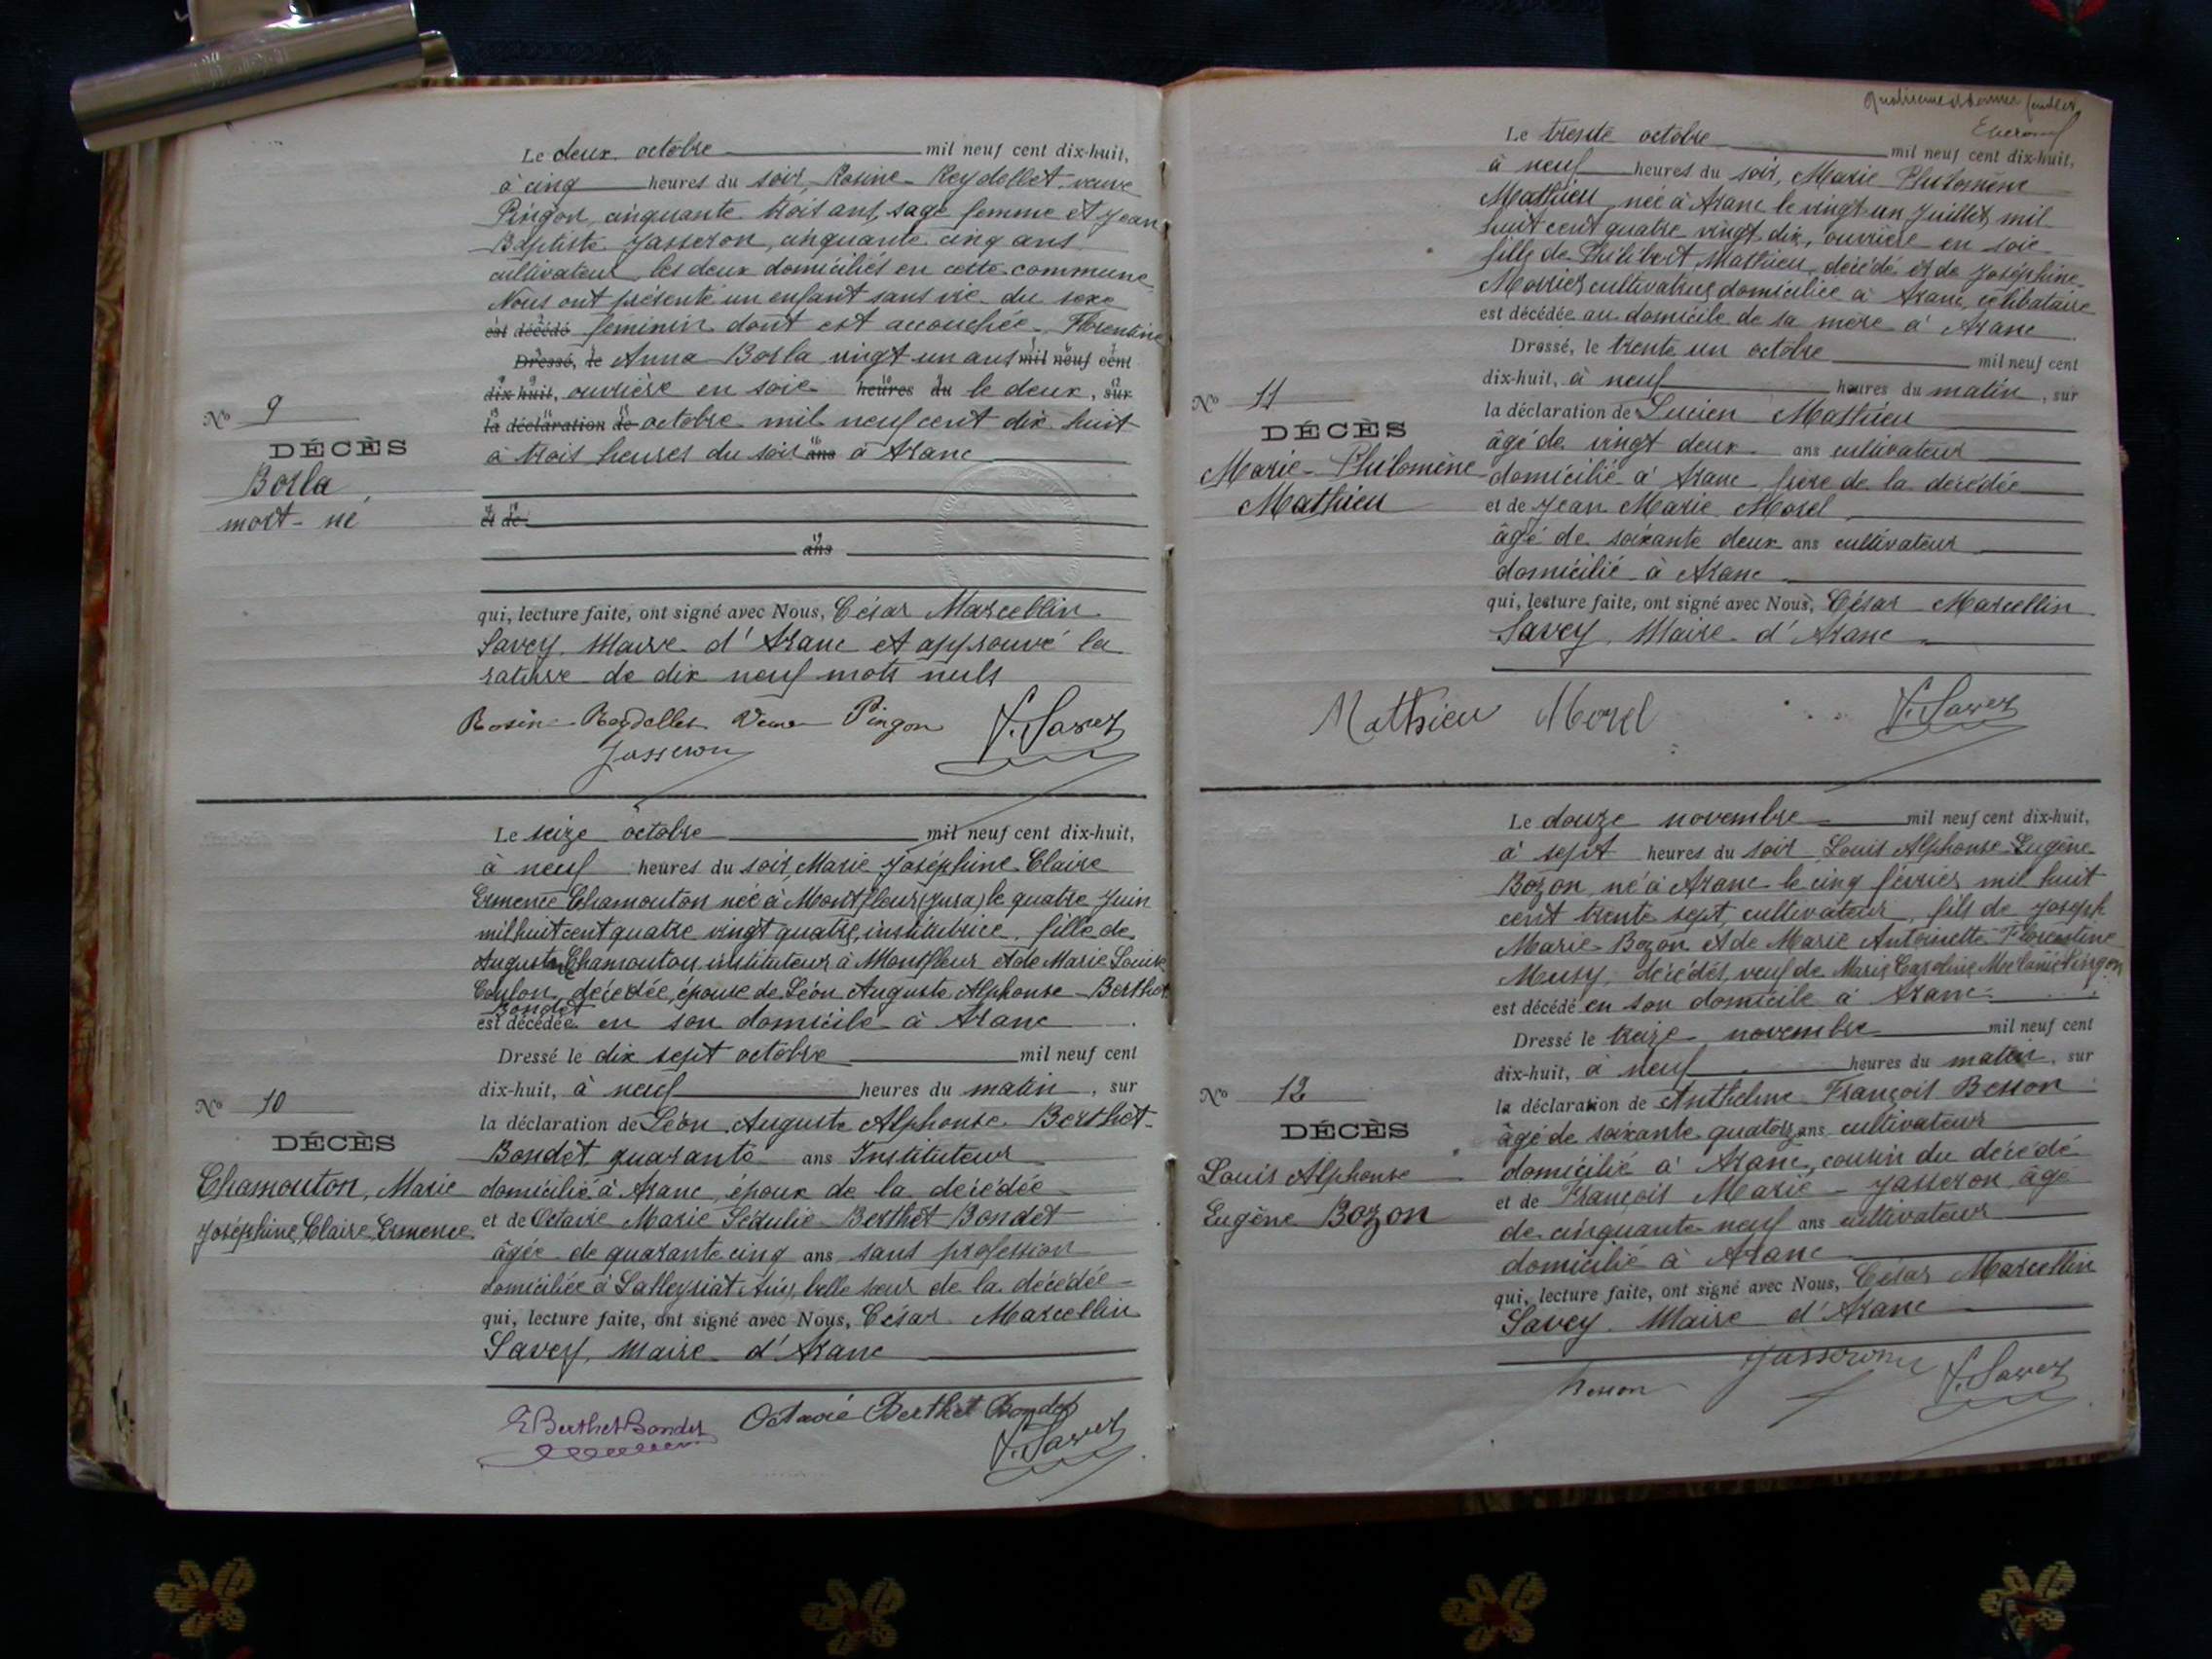 Le deux octobre mil neuf cent dix-huit,
à cinq heures du soir, Rosine Reydellet veuve
Pingon, cinquante trois ans, sage femme et Jean
Baptiste Jasseron, cinquante cinq ans
cultivateur, les deux domiciliés en cette commune
Nous ont présenté un enfant sans vie du sexe
est décédé féminin dont est accouchée Florentine
Dressé, le Anna Borla vingt un ans mil neuf cent
dix-huit, ouvrière en soie heures du le deux, sur
la déclaration de octobre mil neuf cent dix huit
à trois heures du soir ans à Aranc
N° 9
DÉCÈS
Borla
mort-né
et de
ans
qui, lecture faite, ont signé avec Nous, César Marcellin
Savey Maire d'Aranc et approuvé la
rature de dix neuf mots nuls
Rosine Reydellet Veuve Pingon
Jasseron
Savey
Le seize octobre mil neuf cent dix-huit,
à neuf heures du soir, Marie Joséphine Claire
Ermence Chamouton née à Montfleur (Jura) le quatre Juin
mil huit cent quatre vingt quatre, institutrice, fille de
Auguste Chamouton instituteur à Montfleur et de Marie Louise
Coulon, décédée, épouse de Léon Auguste Alphonse Berthet
Bondet
est décédée en son domicile à Aranc
Dressé le dix sept octobre mil neuf cent
dix-huit, à neuf heures du matin, sur
la déclaration de Léon Auguste Alphonse Berthet-
Bondet quarante ans Instituteur
domicilié à Aranc, époux de la décédée
et de Octavie Marie Sédulie Berthet Bondet
âgée de quarante cinq ans sans profession
domiciliée à Lalleyriat Ain, belle sœur de la décédée
qui, lecture faite, ont signé avec Nous, César Marcellin
Savey, Maire d'Aranc
N° 10
DÉCÈS
Chamouton, Marie
Joséphine, Claire, Ermence
Berthet Bondet Octavie Berthet Bondet
Savey
Quatrième et dernier feuillet
Le trente octobre mil neuf cent dix-huit,
à neuf heures du soir, Marie Philomène
Mathieu, née à Aranc le vingt un Juillet mil
huit cent quatre vingt dix, ouvrière en soie
fille de Philibert Mathieu, décédé et de Joséphine
cultivatrice domiciliée à Aranc, célibataire
est décédée au domicile de sa mère à Aranc
Dressé, le trente un octobre mil neuf cent
dix-huit, à neuf heures du matin, sur
la déclaration de Lucien Mathieu
âgé de vingt deux ans cultivateur
domicilié à Aranc frère de la décédée
et de Jean Marie Morel
âgé de soixante deux ans cultivateur
domicilié à Aranc
qui, lecture faite, ont signé avec Nous, César Marcellin
Savey, Maire d'Aranc
N° 11
DÉCÈS
Marie-Philomène
Mathieu
Mathieu Morel Savey
Le douze novembre mil neuf cent dix-huit,
à sept heures du soir Louis Alphonse Eugène
Bozon né à Aranc le cinq février mil huit
cent trente sept, cultivateur, fils de Joseph
Marie Bozon et de Marie Antoinette Florentine
Musy, décédés, veuf de Marie Caroline Mélanie Pingon
est décédé en son domicile à Aranc
Dressé le treize novembre mil neuf cent
dix-huit, à neuf heures du matin, sur
la déclaration de Anthelme François Besson
âgé de soixante quatorze ans cultivateur
domicilié à Aranc, cousin du décédé
et de François Marie Jasseron âgé
de cinquante neuf ans cultivateur
domicilié à Aranc
qui, lecture faite, ont signé avec Nous, César Marcellin
Savey Maire d'Aranc
N° 12
DÉCÈS
Louis Alphonse
Eugène Bozon
Besson Jasseron Savey